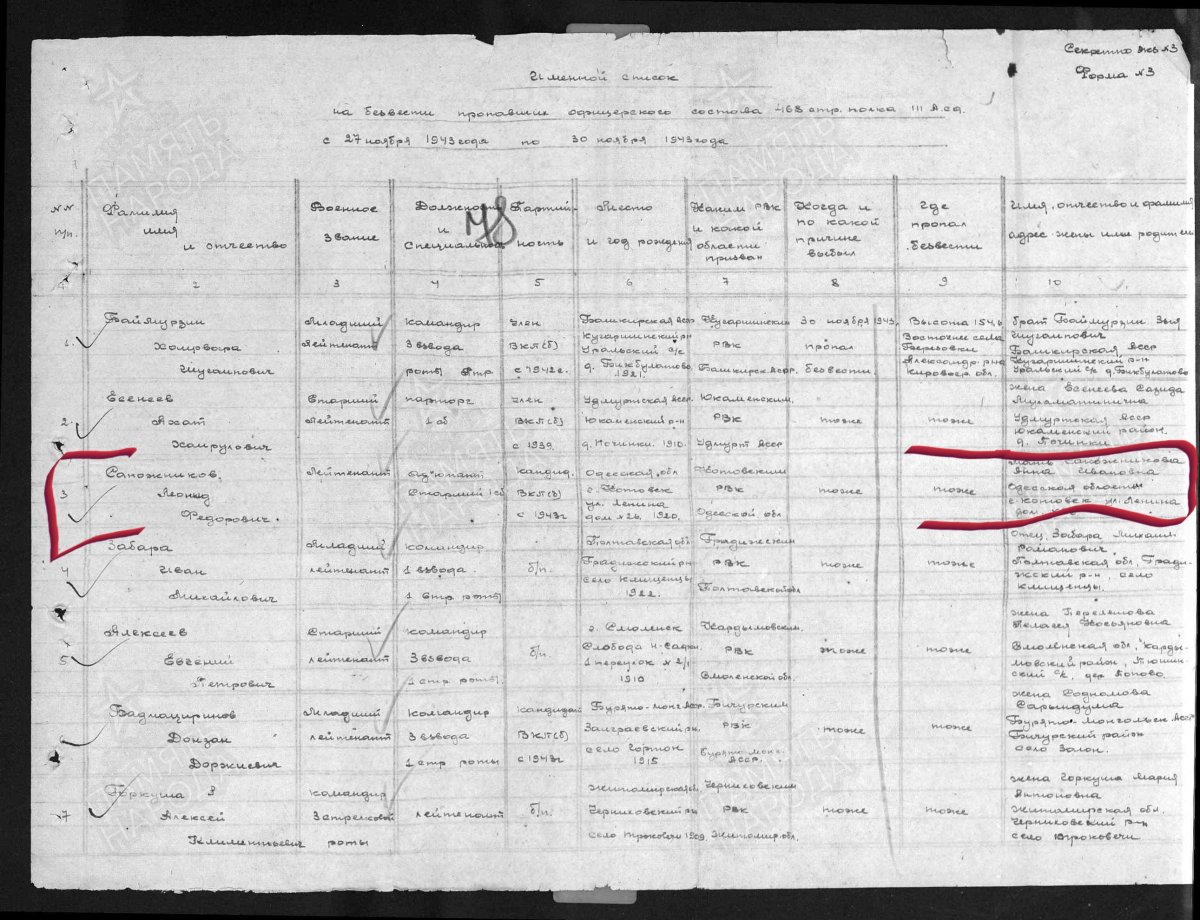 Секретно экз №3
Форма №3
Именной список
на безвести пропавших офицерского состава 468 стр. полка III А.сд.
с 27 ноября 1943 года по 30 ноября 1943 года
ПАМЯТЬ НАРОДА
NN п/п. Фамилия имя и отчество Военное звание Должность и специальность Партийность Место и год рождения Каким РВК и какой области призван Когда и по какой причине выбыл Где пропал безвести Имя, отчество и фамилия адрес жены или родителей
2 3 4 5 6 7 8 9 10
Баймурзин Младший командир член Башкирская АССР Кугарчинским 30 ноября 1943 Высота 154,6 брат Баймурзин
1. лейтенант 3 взвода ВКП(б) Кугарчинский р-н Уральский с/с РВК пропал Восточнее села Шугаипович Башкирская АССР
Шугаипович роты ПТР с 1942 г. д. Бикбулатово 1921. Башкирск. АССР. безвести Кировогр. обл. Кугарчинский р-н Уральский с/с д. Бикбулатово
Есенеев Старший парторг член Удмуртская АССР Юкаменским жена Есенеева
2. Ахат лейтенант 1 сб ВКП(б) Юкаменский р-н РВК тоже тоже Удмуртская АССР Юкаменский район
Хайрулович с 1939. д. Починки. 1910. Удмурт АССР д. Починки
Сапожников лейтенант адъютант кандид. Одесская обл Котовским мать Сапожникова Анна Ивановна
3 Леонид старший сб ВКП(б) г. Котовск РВК тоже тоже Одесская область
Федорович. с 1943г ул. Ленина дом №26, 1920. Одесской обл г. Котовск ул. Ленина дом
Забара Младший командир Полтавская обл Градижским отец Забара Михаил
4 Иван лейтенант 1 взвода б/п. Градижский р-н РВК тоже тоже Романович Полтавская обл, Градижский р-н, село
Михайлович 1 стр роты село Клищенцы 1922. Полтавской обл Клищенцы.
Алексеев Старший командир г. Смоленск Кардымовским жена Перелетова Пелагея
5 Евгений лейтенант 3 взвода б/п. Слобода 1 переулок №2/1 РВК тоже тоже Смоленская обл, Кардымовский район,
Петрович 1 стр роты 1910 Смоленской обл. дер Попово.
Бадмациринов Младший командир кандидат Бурято-монг. АССР. Бичурским жена Содномова Сарындума
6 Донзан лейтенант 3 взвода ВКП(б) Заиграевский р-н РВК тоже тоже Бурято-монгольск. АССР Бичурский район
Доржиевич 1 стр роты с 1943г село 1915 Бурято монг. АССР.
Горкуша командир Житомирская Черниковским жена Горкуша Мария Антоновна
7 Алексей Зстрелковой лейтенант б/п. Черниковский р-н РВК тоже тоже Житомирская обл. Черниковский р-н
Климентьевич роты село 1909. Житомир. обл. село